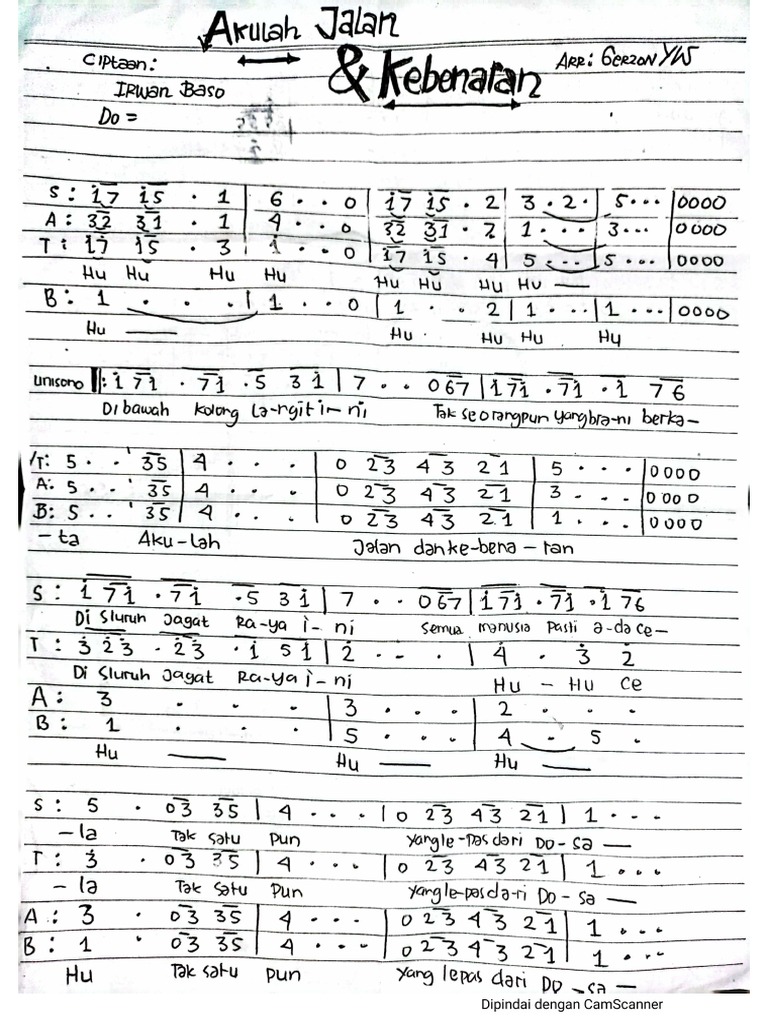 Akulah Jalan
& Kebenaran
Ciptaan:
Irwan Baso
Arr: Gerzon YW
Do =
S: i̅7̅ i̅5̅ . 1 | 6 . . 0 | i̅7̅ i̅5̅ . 2 | 3 . 2 . | 5 . . . | 0000
A: 3̅2̅ 3̅1̅ . 1 | 4 . . 0 | 3̅2̅ 3̅1̅ . 2 | 1 . . . | 3 . . . | 0000
T: i̅7̅ i̅5̅ . 3 | 1 . . 0 | i̅7̅ i̅5̅ . 4 | 5 . . . | 5 . . . | 0000
Hu Hu Hu Hu Hu Hu Hu Hu —
B: 1 . . . | 1 . . 0 | 1 . . 2 | 1 . . . | 1 . . . | 0000
Hu — Hu . Hu Hu Hu
unisono ‖: i 7̅i̅ . 7̅i̅ . 5 3 i | 7 . . 0 6̅7̅ | i 7̅i̅ . 7̅i̅ . i 7̅6̅
Dibawah kolong la-ngit i-ni Tak seorangpun yang bra-ni berka-
/T: 5 . . ' 3̅5̅ | 4 . . . | 0 2̅3̅ 4̅3̅ 2̅1̅ | 5 . . . | 0000
A: 5 . . ' 3̅5̅ | 4 . . . | 0 2̅3̅ 4̅3̅ 2̅1̅ | 3 . . . | 0000
B: 5 . . ' 3̅5̅ | 4 . . . | 0 2̅3̅ 4̅3̅ 2̅1̅ | 1 . . . | 0000
-ta Aku-lah Jalan dan ke-bena-ran
S: i 7̅i̅ . 7̅i̅ . 5 3 i | 7 . . 0 6̅7̅ | i 7̅i̅ . 7̅i̅ . i 7 6
Di Sluruh Jagat Ra-ya i-ni Semua manusia Pasti a-da ce-
T: 3̇ 2̇3̇ . 2̇3̇ . i 5 i | 2̇ . . . | 4̇ . 3̇ 2̇
Di Sluruh Jagat Ra-ya i-ni Hu - Hu Ce
A: 3 . . . | 3 . . . | 2 . . .
B: 1 . . . | 5 . . . | 4 . 5 .
Hu — Hu — Hu —
S: 5 . 0̅3̅ 3̅5̅ | 4 . . . | 0 2̅3̅ 4̅3̅ 2̅1̅ | 1 . . .
-la Tak satu Pun Yang le-pas dari Do-sa —
T: 3̇ . 0̅3̅ 3̅5̅ | 4 . . . | 0 2̅3̅ 4̅3̅ 2̅1̅ | 1 . . .
-la Tak satu Pun Yang le-pas da-ri Do-sa —
A: 3 . 0̅3̅ 3̅5̅ | 4 . . . | 0 2̅3̅ 4̅3̅ 2̅1̅ | 1 . . .
B: 1 . 0̅3̅ 3̅5̅ | 4 . . . | 0 2̅3̅ 4̅3̅ 2̅1̅ | 1 . . .
Hu Tak satu Pun Yang lepas dari Do-sa —
Dipindai dengan CamScanner